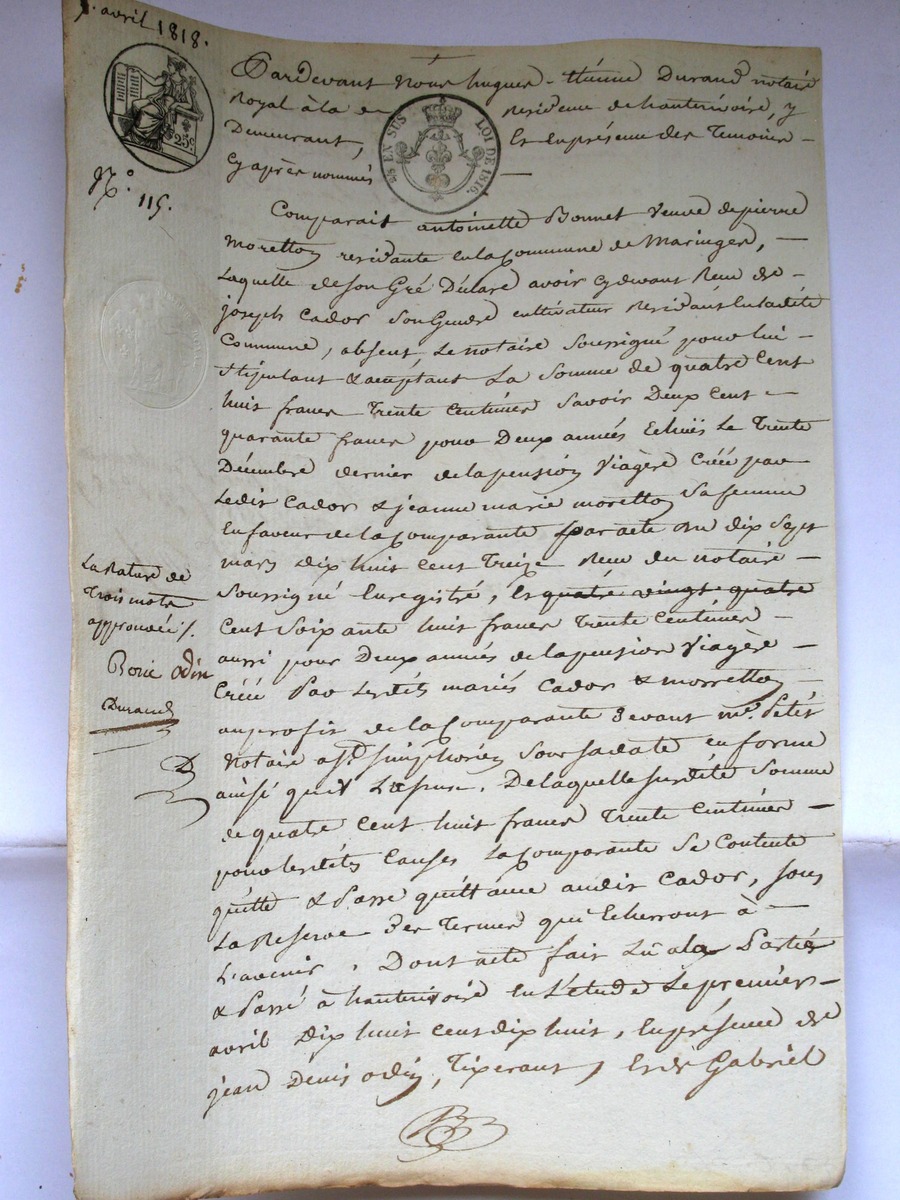 1. avril 1818.
25c.
EN SUS
LOI DE 1816.
N.° 115.
Pardevant Nous hugues-Etienne Durand notaire
Royal à la de residence de hauterivoire, y
Demeurant, Et En présence des Temoins
Cy après nommés
Comparait antoinette Bonnet Veuve de pierre
Moretton residante en la Commune de Maringes,
Laquelle de son Gré Déclare avoir cy devant Reçu de
joseph Cador Son Gendre cultivateur Residant En ladite
Commune, absent, Le notaire Soussigné pour lui
Stipulant & aceptant La Somme de quatre Cent
huit francs Trente Centimes Savoir Deux Cent
quarante francs pour Deux années Echues Le Trente
Décembre dernier de la pension Viagère Créée par
Ledit Cador & jeanne marie moretton Sa femme
En faveur de la Comparante par acte du dix Sept
mars Dix huit Cent Treize Reçu du notaire
Soussigné Enregistré, Et quatre vingt quatre
Cent Soixante huit francs Trente Centimes
aussi pour Deux années de la pension Viagère
Créé Par Lesdits mariés Cador & morretton
au profit de la Comparante Devant m.e Petit
Notaire a St. Simphorien Sous sa date en forme
ainsi qu'il Expose. De laquelle susdite Somme
de quatre Cent huit francs Trente Centimes
pour lesdites Causes La Comparante Se Contente
quitte & Passe quittance audit Cador, sous
La Reserve des Termes qui Echerront à
L'avenir. Dont acte fait Lu a la Partie
& Passé à hauterivoire En L'etude Le premier
avril Dix huit Cent dix huit, En présence de
jean Denis odin, Tixerant, Et de Gabriel
La Rature de
Trois mots
approuvée /.
Odin
Durand